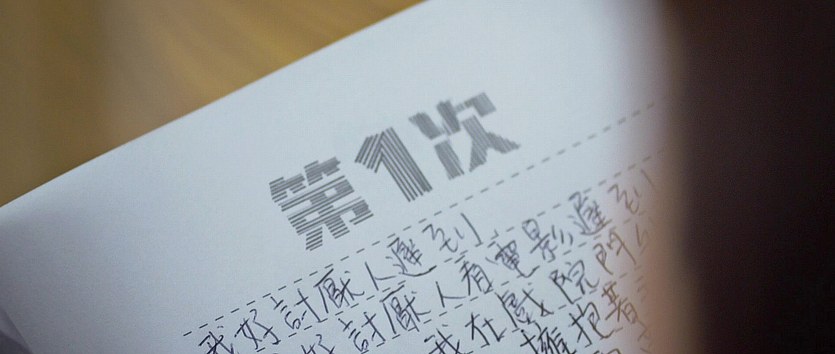 第1次
我好討厭人遲到、
好討厭人看電影遲到
我在戲院門
擁抱著